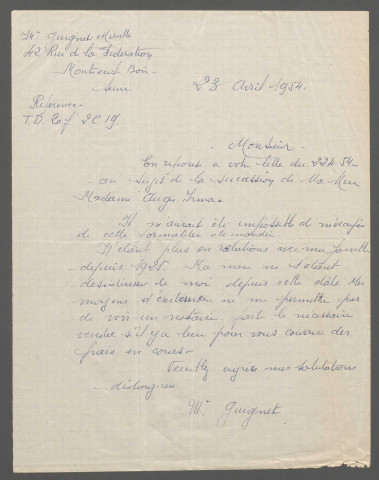 42 Rue de la Federation
Montreuil Bois
Seine
23 Avril 1954.
Reference
T.D. 2C19
Monsieur
En reponse a votre lettre du 22 4 54
au sujet de la sucession de Ma Mere
Madame Auger Irma.
Il m'aurait été impossible de
de cette formalitee
N'etant plus en relations avec ma famille
depuis 1925. Ma mere ne s'etant
de moi depuis cette date Mes
moyens d'existence ne me permettre pas
de voir un notaire faite le necessaire
vendre s'il y a lieu pour vous couvrir des
frais en cours.
Veuillez agreer mes salutations
distinguees
Me Guignet